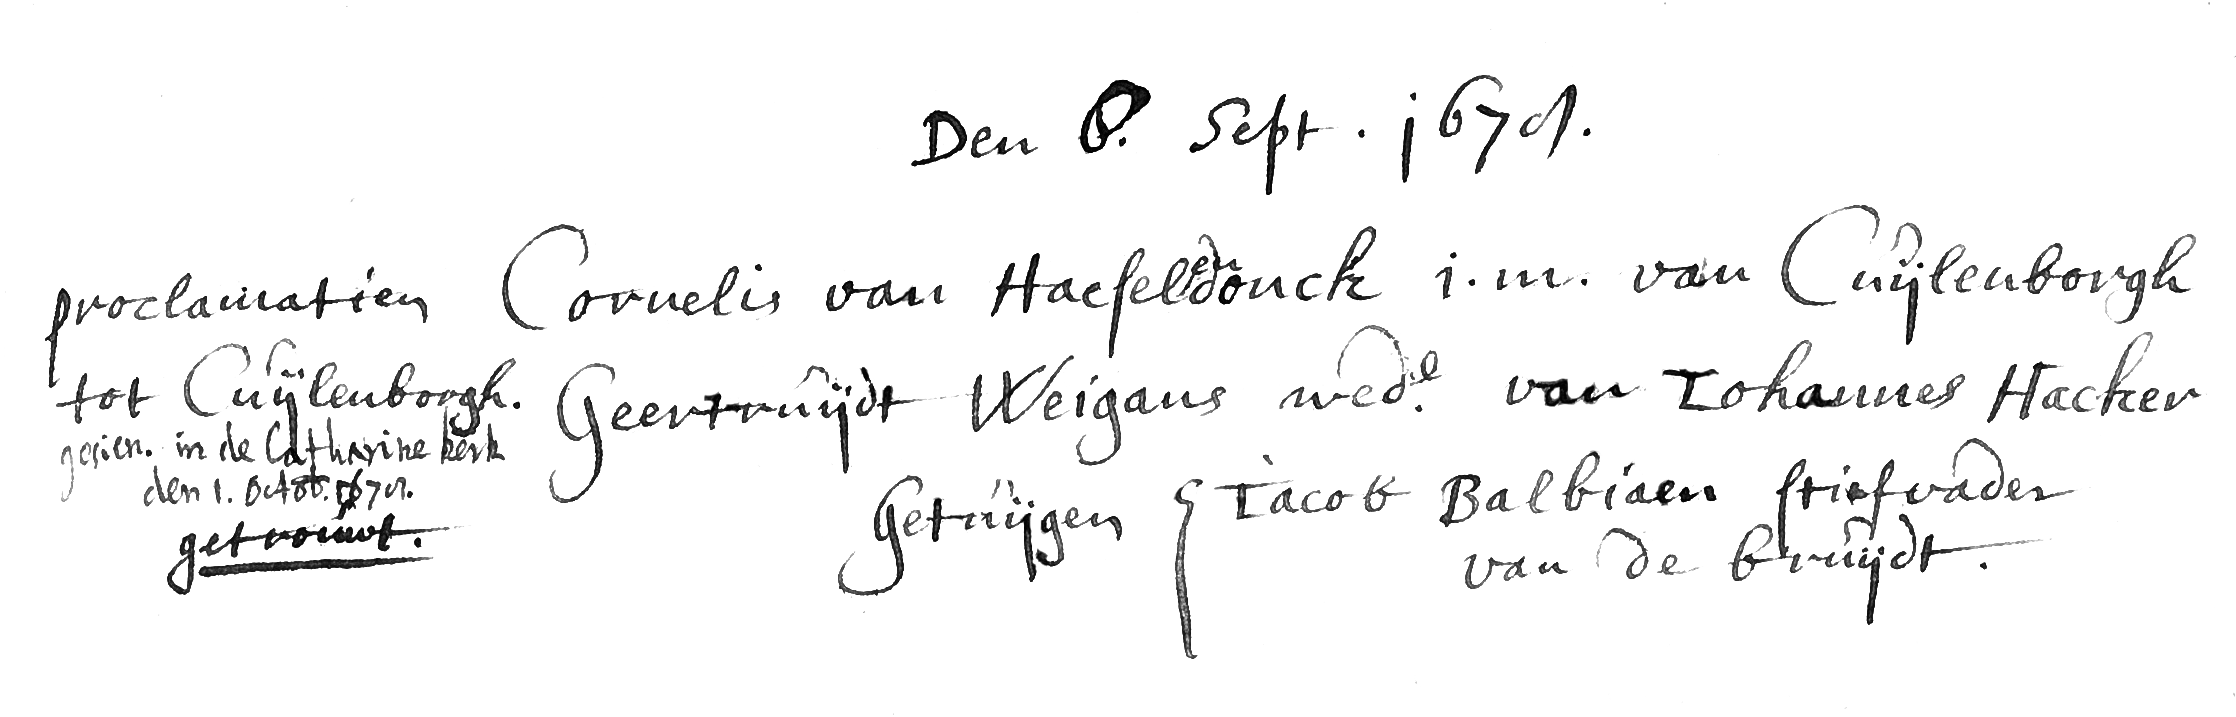 Den 6. Sept. 1679.
proclamatien
tot Cuÿlenborgh.
gesien. in de Catharine kerk
den 1. Octob. 1679.
getrouwt.
Cornelis van Haeseldenonck i.m. van Cuÿlenborgh
Geertruÿdt Weigans wed.e van Iohannes Hacker
Getuÿgen { Iacob Balbiaen stiefvader
van de bruÿdt.